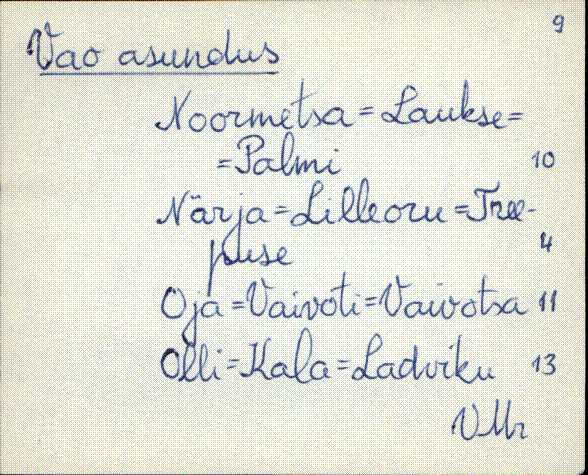 9
Vao asundus
Noormetsa = Laukse =
= Palmi 10
Närja = Lilleoru = Tree-
puse 4
Oja = Vaivoti = Vaivotsa 11
Olli = Kala = Ladviku 13
VMr